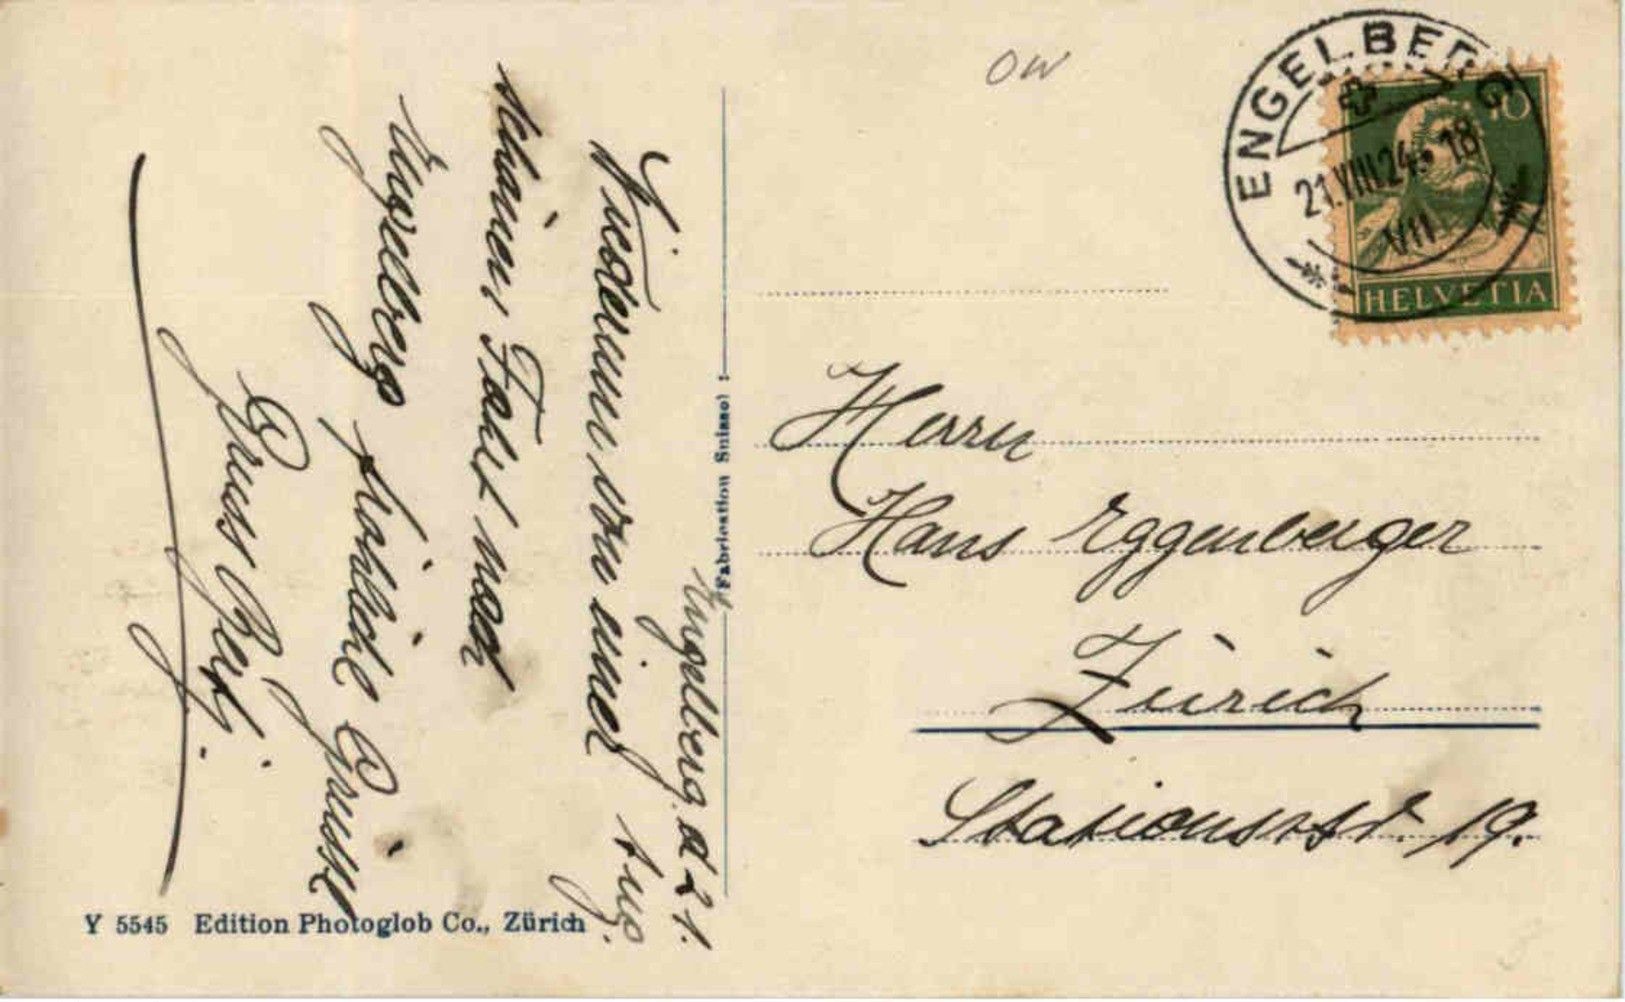 OW
ENGELBERG
21.VIII.24.18
VII
10
HELVETIA
Engelberg d 21.
Aug.
Wiederum von einer
schönen Fahrt nach
Engelberg herzliche Grüsse
Gruss
Herrn
Hans Eggenberger
Zürich
Stationsstr. 19.
Fabrication Suisse
Y 5545 Edition Photoglob Co., Zürich